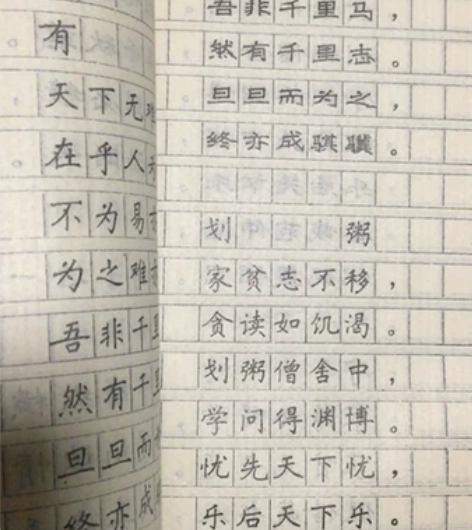 有
天下无难
在乎人
不为易
为之难
吾非千里
然有千
旦旦而
终亦成
吾非千里马，
然有千里志。
旦旦而为之，
终亦成骐骥。
划粥
家贫志不移，
贪读如饥渴。
划粥僧舍中，
学问得渊博。
忧先天下忧，
乐后天下乐。